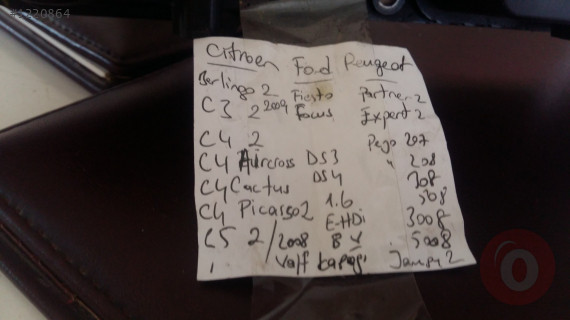 Citroen Ford Peugeot
Berlingo 2 Fiesta Partner 2
C3 2 2009 Focus Expert 2
C4 2 Pejo 207
C4 Aircross DS3 " 208
C4 Cactus DS4 308
C4 Picasso 2 1.6 508
C5 2/2008 E-HDi 3008
8 V 5008
Valf kapağı Jampy 2